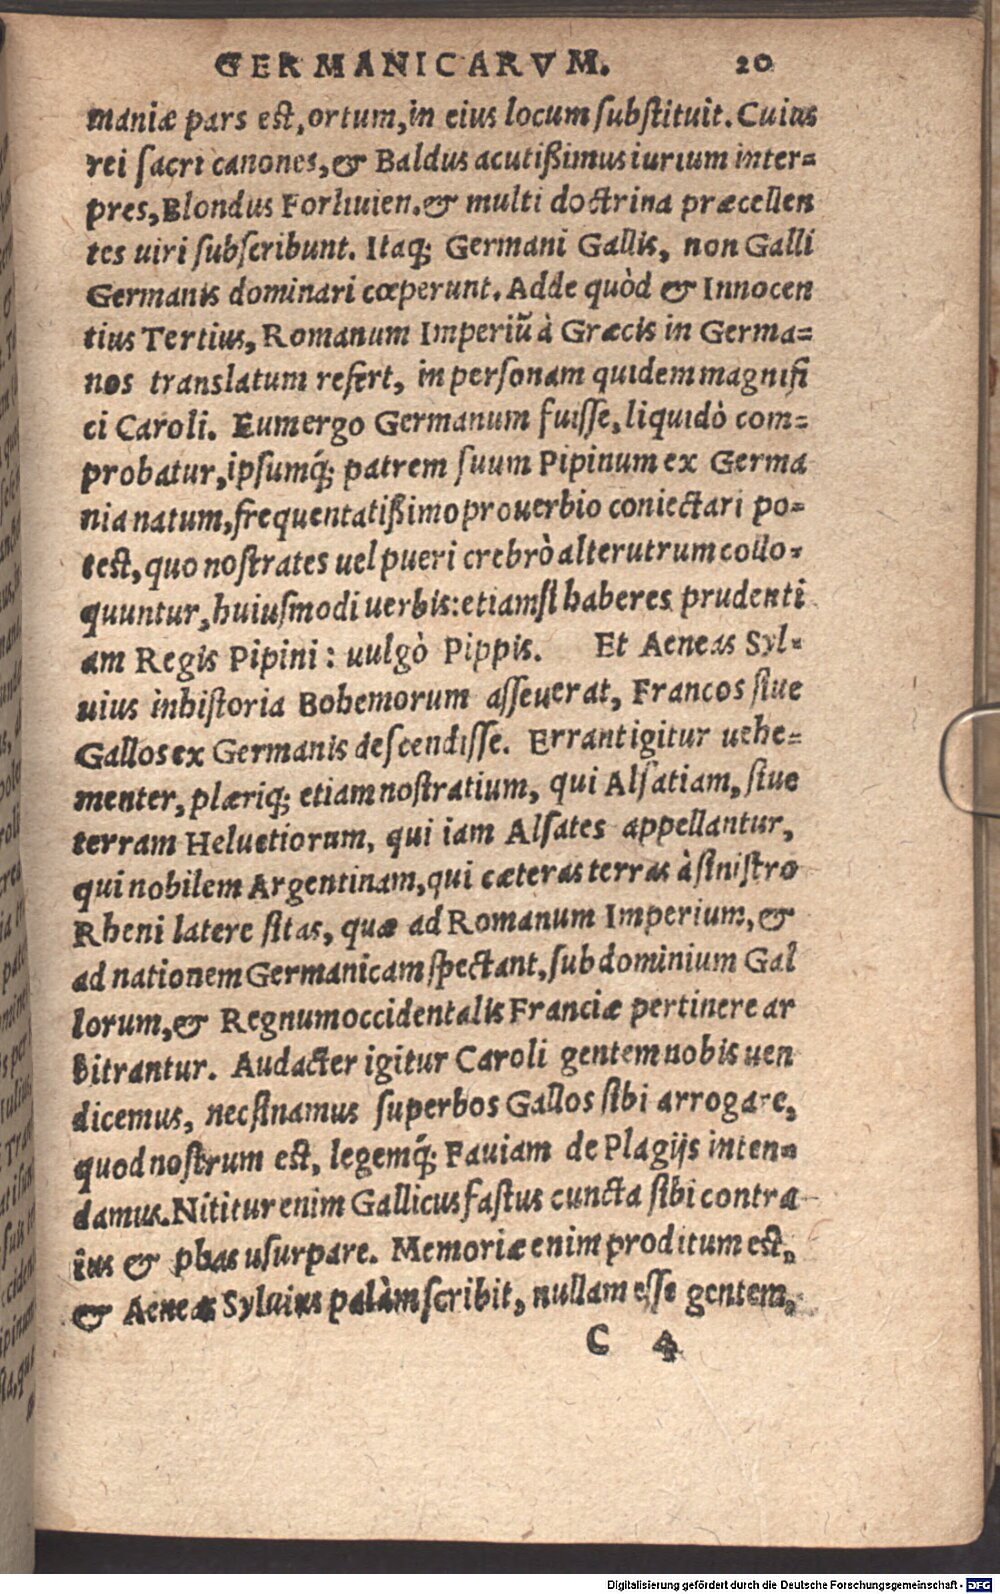 GERMANICARVM. 20
maniæ pars est, ortum, in eius locum substituit. Cuius
rei sacri canones, & Baldus acutißimus iurium inter=
pres, Blondus Forliuien. & multi doctrina præcellen
tes uiri subscribunt. Itaq; Germani Gallis, non Galli
Germanis dominari cœperunt. Adde quòd & Innocen
tius Tertius, Romanum Imperiũ à Græcis in Germa=
nos translatum refert, in personam quidem magnifi
ci Caroli. Eum ergo Germanum fuisse, liquidò com=
probatur, ipsumq́; patrem suum Pipinum ex Germa
nia natum, frequentatißimo prouerbio coniectari po=
test, quo nostrates uel pueri crebrò alterutrum collo=
quuntur, huiusmodi uerbis: etiamsi haberes prudenti
am Regis Pipini: uulgò Pippis. Et Aeneas Syl=
uius in historia Bohemorum asseuerat, Francos siue
Gallos ex Germanis descendisse. Errant igitur uehe=
menter, plæriq; etiam nostratium, qui Alsatiam, siue
terram Heluetiorum, qui iam Alsates appellantur,
qui nobilem Argentinam, qui cæteras terras à sinistro
Rheni latere sitas, quæ ad Romanum Imperium, &
ad nationem Germanicam spectant, sub dominium Gal
lorum, & Regnum occidentalis Franciæ pertinere ar
bitrantur. Audacter igitur Caroli gentem nobis uen
dicemus, nec sinamus superbos Gallos sibi arrogare,
quod nostrum est, legemq́; Fauiam de Plagijs inten=
damus. Nititur enim Gallicus fastus cuncta sibi contra
ius & phas usurpare. Memoriæ enim proditum est,
& Aeneas Syluius palàm scribit, nullam esse gentem,
C 4
Digitalisierung gefördert durch die Deutsche Forschungsgemeinschaft - DFG